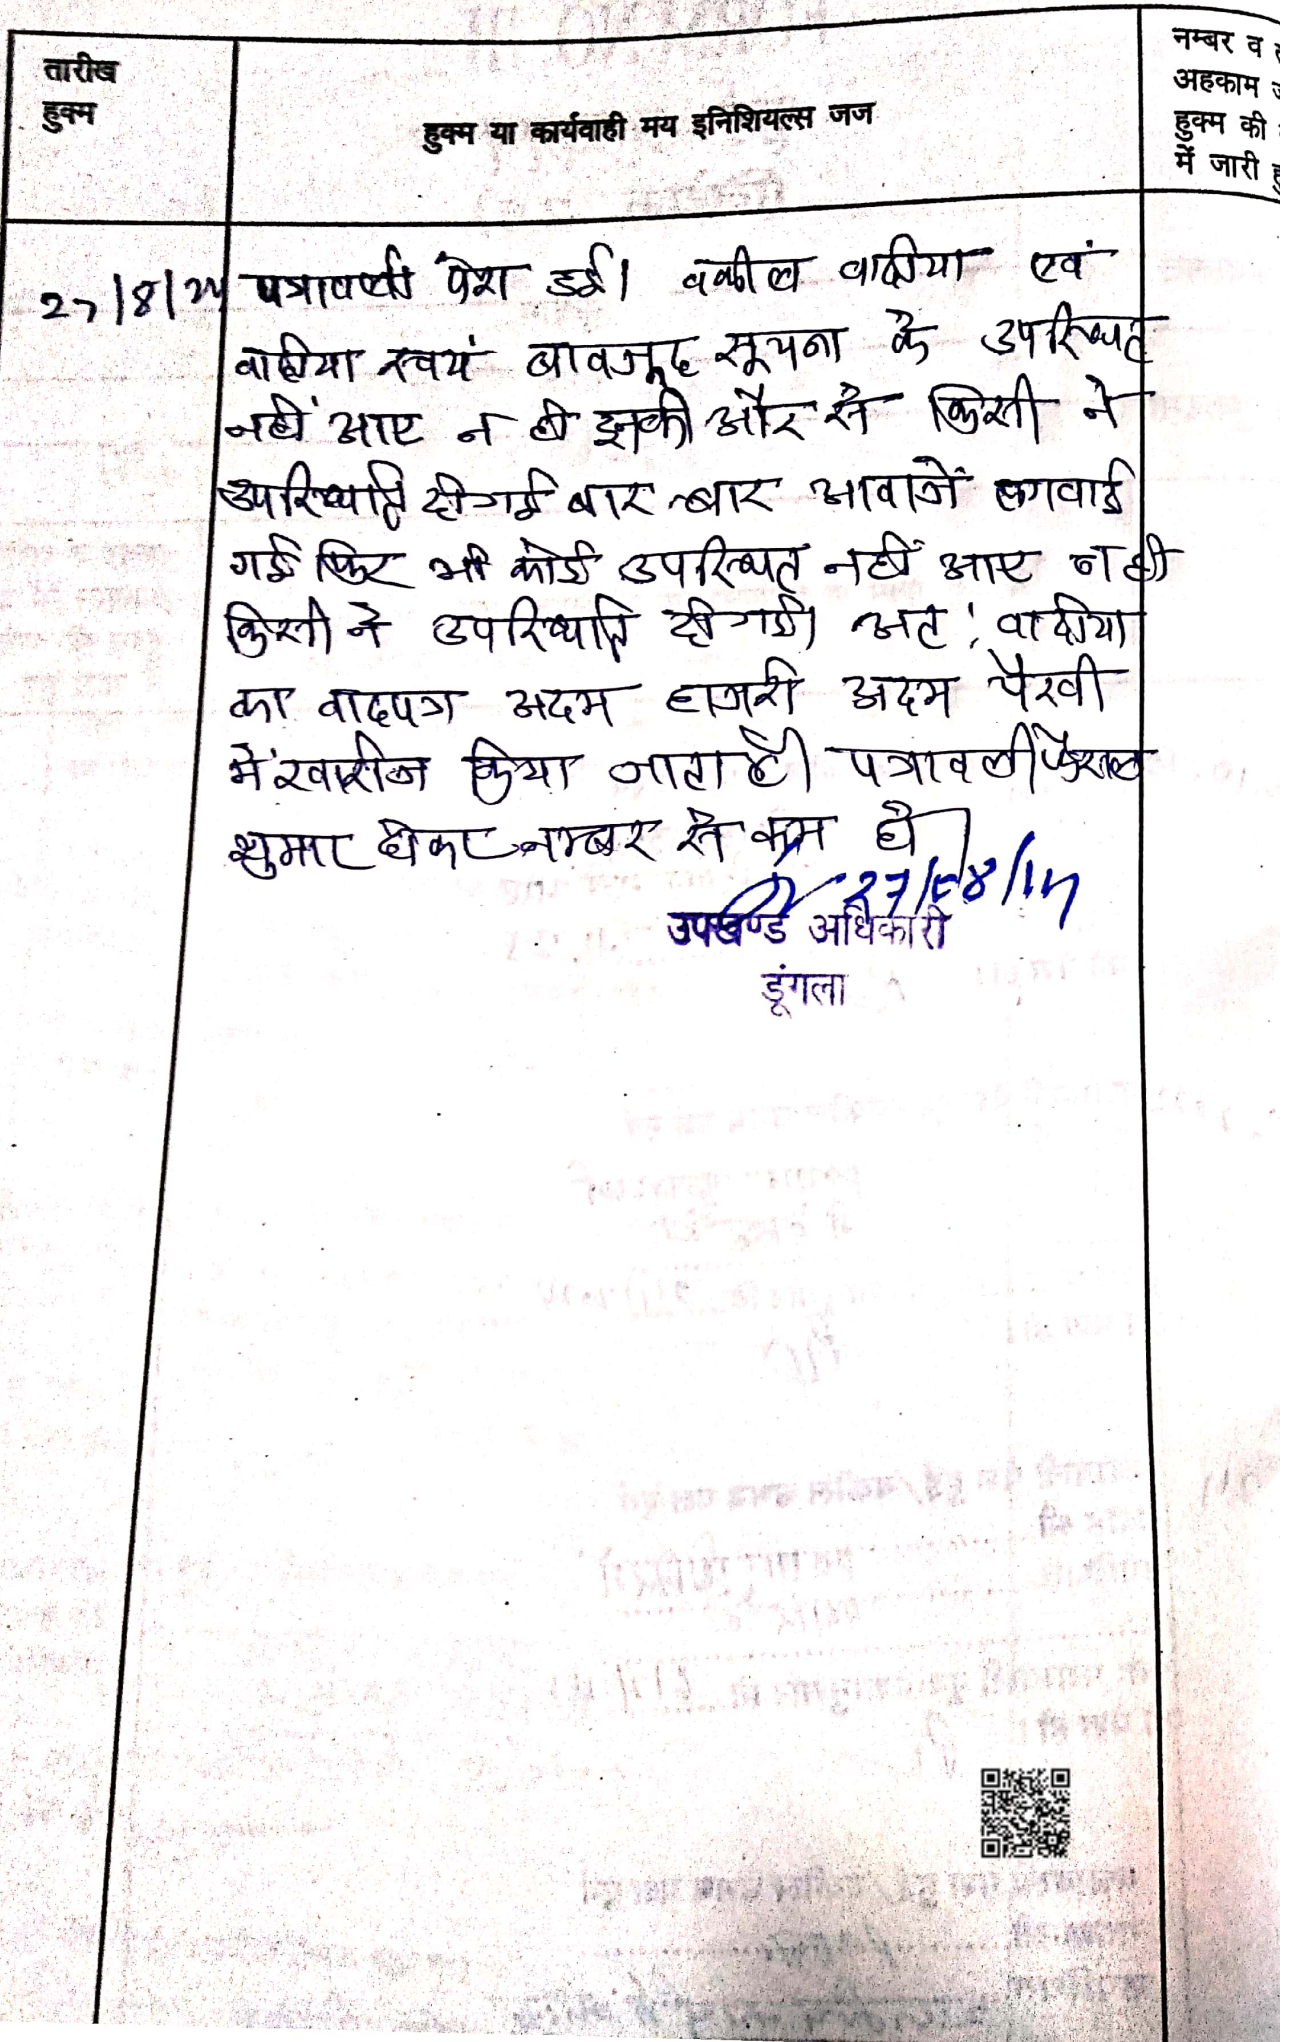 तारीख
हुक्म
हुक्म या कार्यवाही मय इनिशियल्स जज
नम्बर व
अहकाम
हुक्म की
में जारी
27/8/24 पत्रावली पेश हुई। वकील वादीया एवं
वादीया स्वयं बावजूद सूचना के उपस्थित
नहीं आए न ही इनकी और से किसी ने
उपस्थिति दी गई बार बार आवाजें लगवाई
गई फिर भी कोई उपस्थित नहीं आए न ही
किसी ने उपस्थिति दी गई। अतः वादीया
का वादपत्र अदम हाजरी अदम पैरवी
में खारीज किया जाता है। पत्रावली फैसल
शुमार होकर नम्बर से कम हो।
27/08/24
उपखण्ड अधिकारी
डूंगला